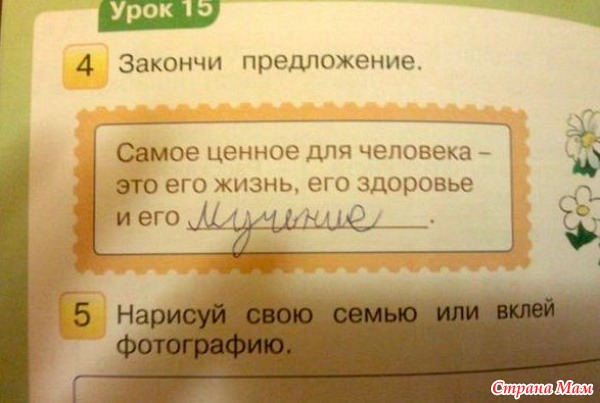 Урок 15
4 Закончи предложение.
Самое ценное для человека –
это его жизнь, его здоровье
и его мучение.
5 Нарисуй свою семью или вклей
фотографию.
Страна Мам